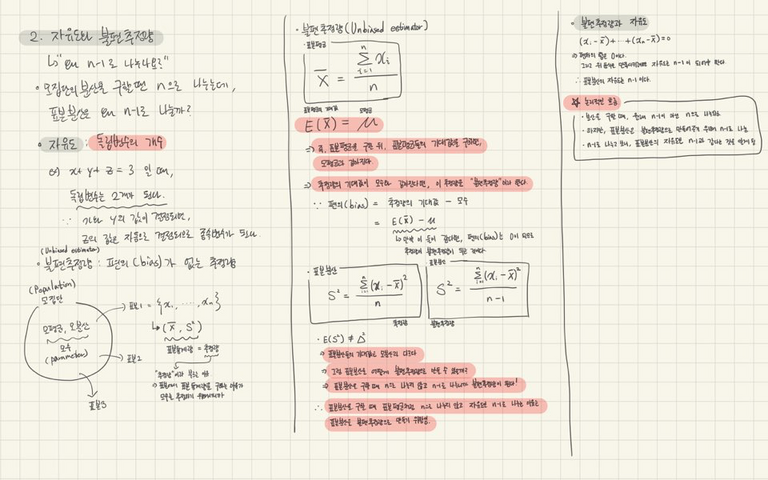 2. 자유도와 불편추정량
↳ "왜 n-1로 나누나요?"
• 모집단의 분산을 구할 땐 n으로 나누는데,
표본분산은 왜 n-1로 나눌까?
• 자유도 : 독립변수의 개수
ex) x + y + z = 3 일 때,
독립변수는 2개가 된다.
∵ x와 y의 값이 결정되면,
z의 값은 자동으로 결정되므로 종속변수가 된다.
(Unbiased estimator)
• 불편추정량 : 편의(bias)가 없는 추정량
(Population)
모집단
모평균, 모분산
모수
(parameter)
→ 표본1 = {x₁, ..., xₙ}
↳ (X̄, S²)
표본통계량 = 추정량
→ 표본2
표본3
• 불편추정량(Unbiased estimator)
• 표본평균
X̄ = Σᵢ₌₁ⁿ xᵢ / n
표본평균의 기대값 모평균
E(X̄) = μ
⇒ 즉, 표본평균을 구한 뒤, 표본평균들의 기대값을 구하면,
모평균과 같아진다.
⇒ 추정량의 기대값이 모수와 같아진다면, 이 추정량을 "불편추정량"이라 한다.
∵ 편의(bias) = 추정량의 기대값 - 모수
= E(X̄) - μ
↳ 만약 이 둘이 같다면, 편의(bias)는 0이 되므로
추정량이 불편추정량이 되는 것이다.
• 표본분산
S² = Σᵢ₌₁ⁿ (xᵢ - X̄)² / n
추정량
표본분산
S² = Σᵢ₌₁ⁿ (xᵢ - X̄)² / n-1
불편추정량
• E(S²) ≠ σ²
⇒ 표본분산들의 기대값은 모분산과 다르다
⇒ 그럼 표본분산을 어떻게 불편추정량으로 만들 수 있을까?
⇒ 표본분산을 구할 때 n으로 나누지 않고 n-1로 나눠야 불편추정량이 된다!
∴ 표본분산을 구할 때 표본평균처럼 n으로 나누지 않고 자유도인 n-1로 나누는 이유는
표본분산을 불편추정량으로 만들기 위함임.
• 불편추정량과 자유도
(x₁ - x̄) + ··· + (xₙ - x̄) = 0
⇒ 편차의 합은 0이다.
∴ 표본분산의 자유도는 n-1 이다.
☆ 논리적인 흐름